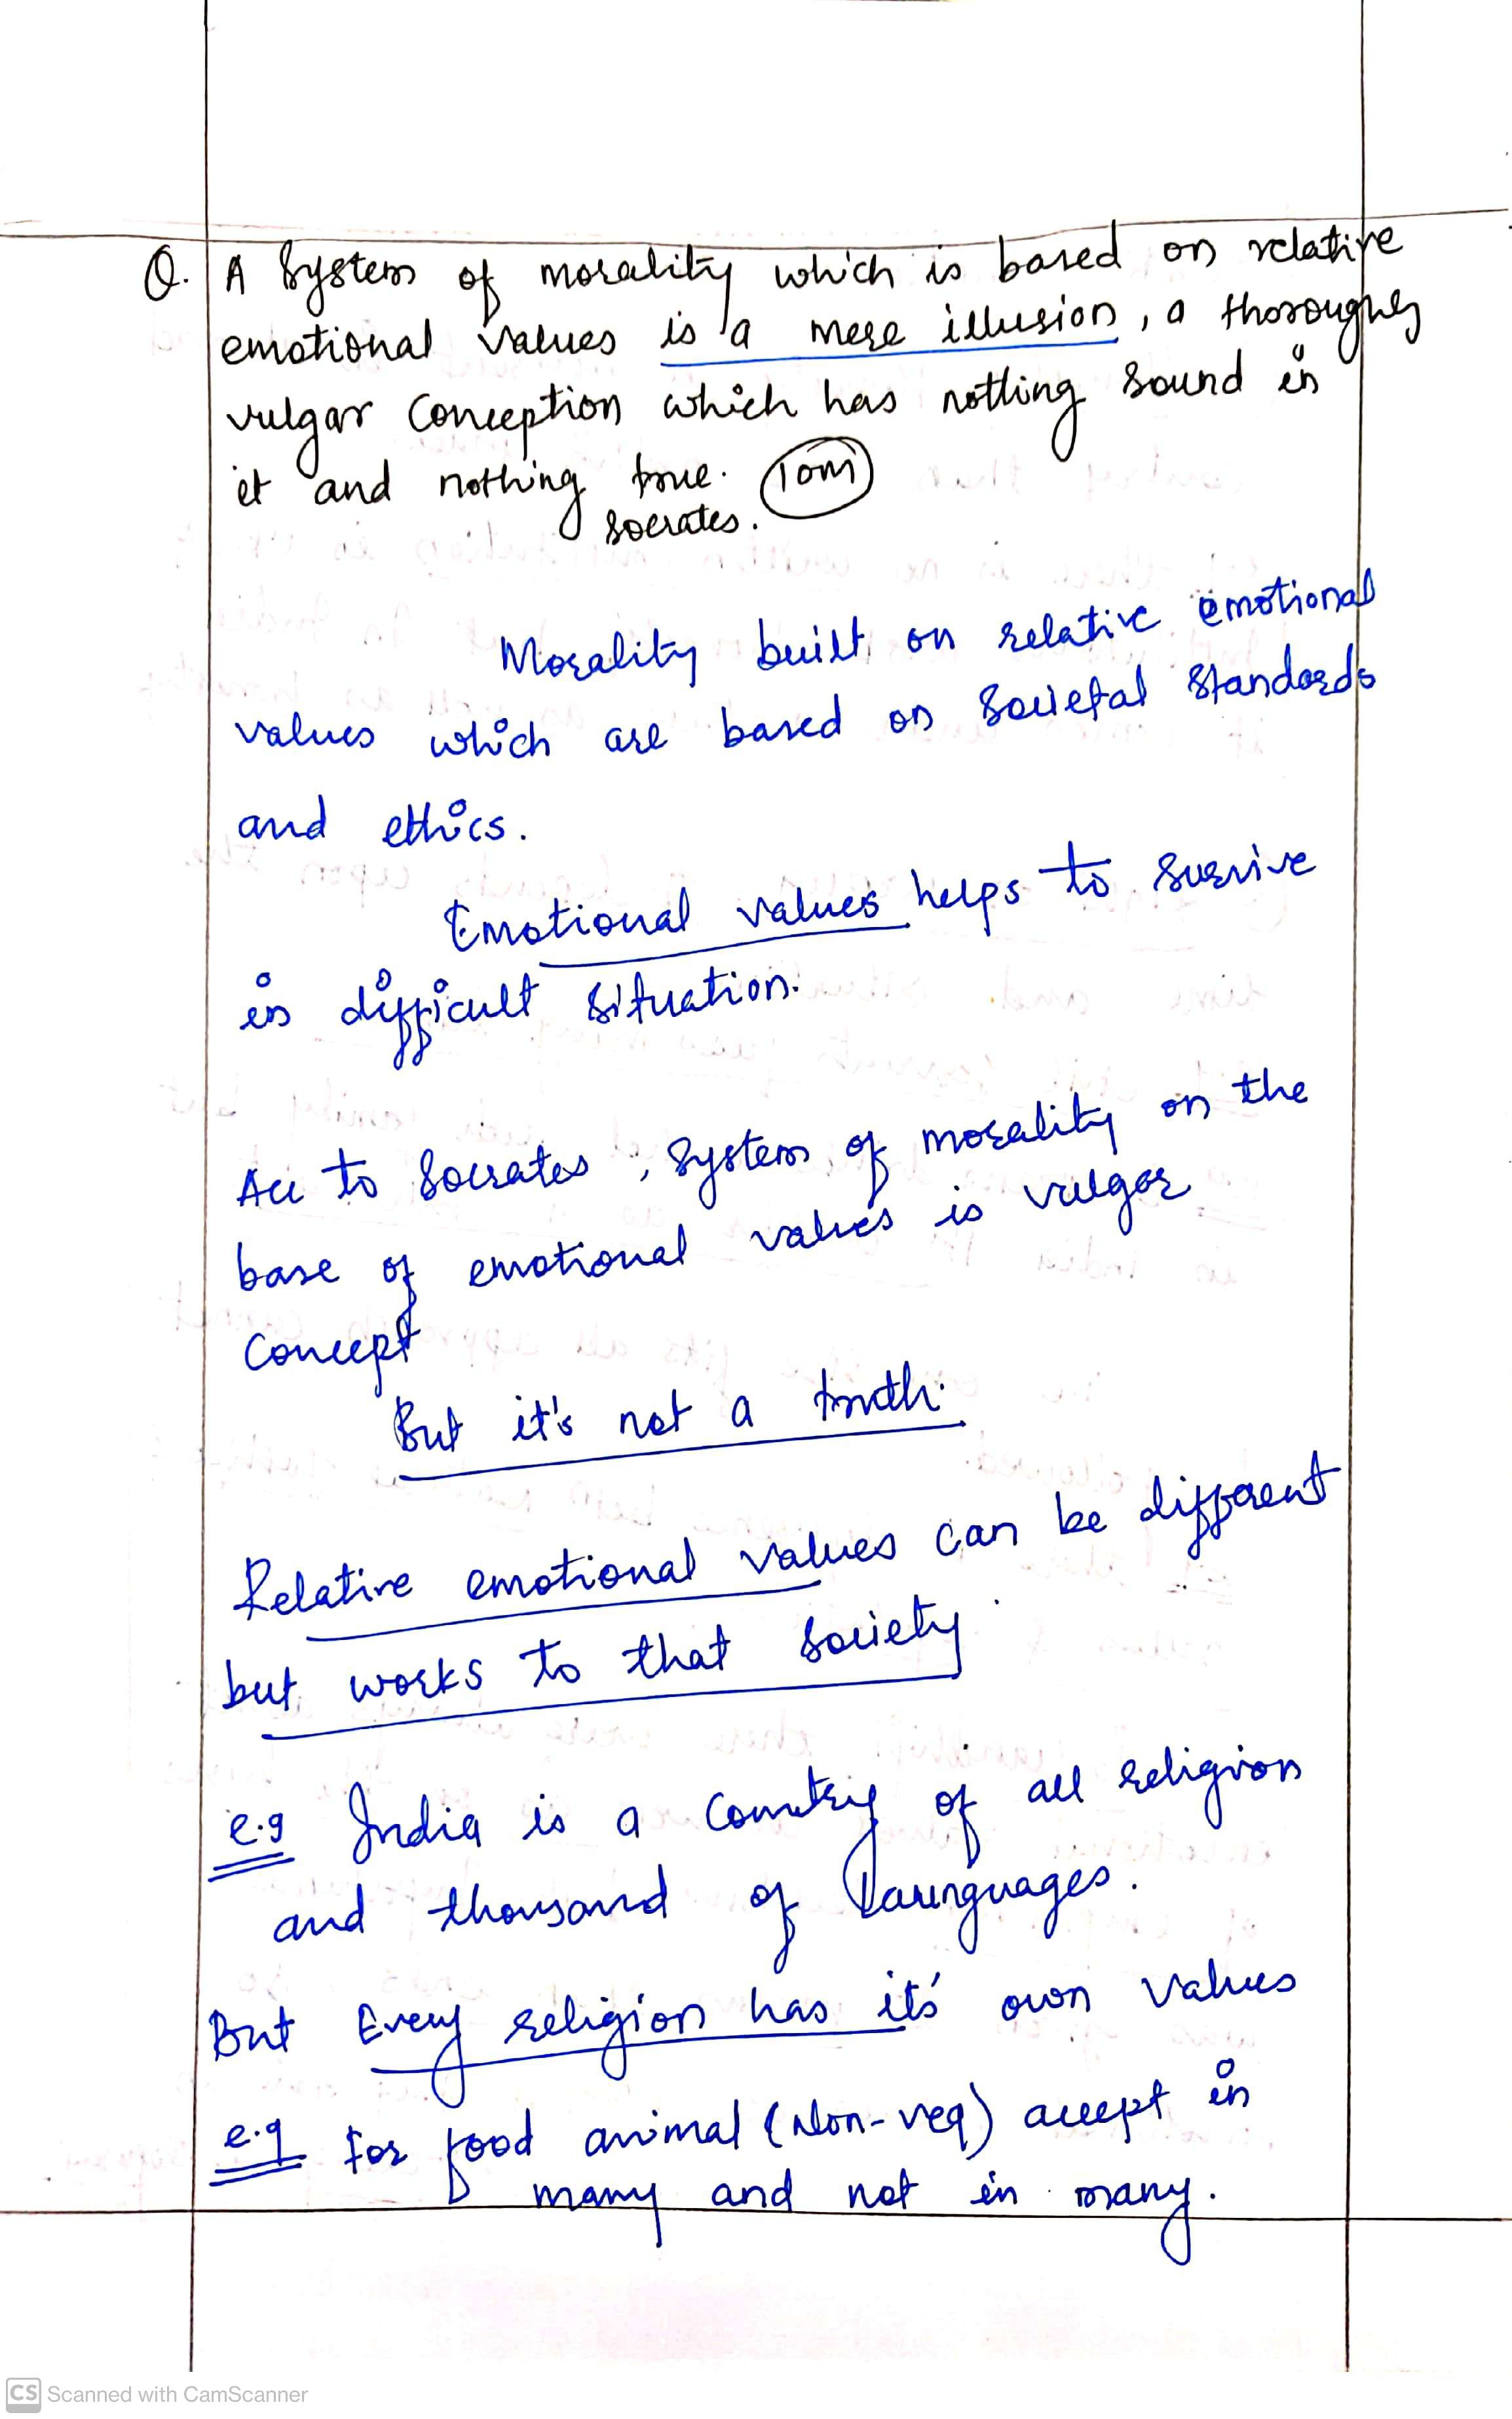 Q. A System of morality which is based on relative
emotional values is a mere illusion, a thoroughly
vulgar conception which has nothing sound in
it and nothing true. 10m
Socrates.
Morality built on relative emotional
values which are based on Societal Standards
and ethics.
Emotional values helps to survive
in difficult situation.
Acc to Socrates, System of morality on the
base of emotional values is vulgar
concept
But it's not a truth.
Relative emotional values can be different
but works to that society.
e.g India is a country of all religion
and thousand of launguages.
But Every religion has it's own values
e.g for food animal (Non-veg) accept in
many and not in many.
CS Scanned with CamScanner